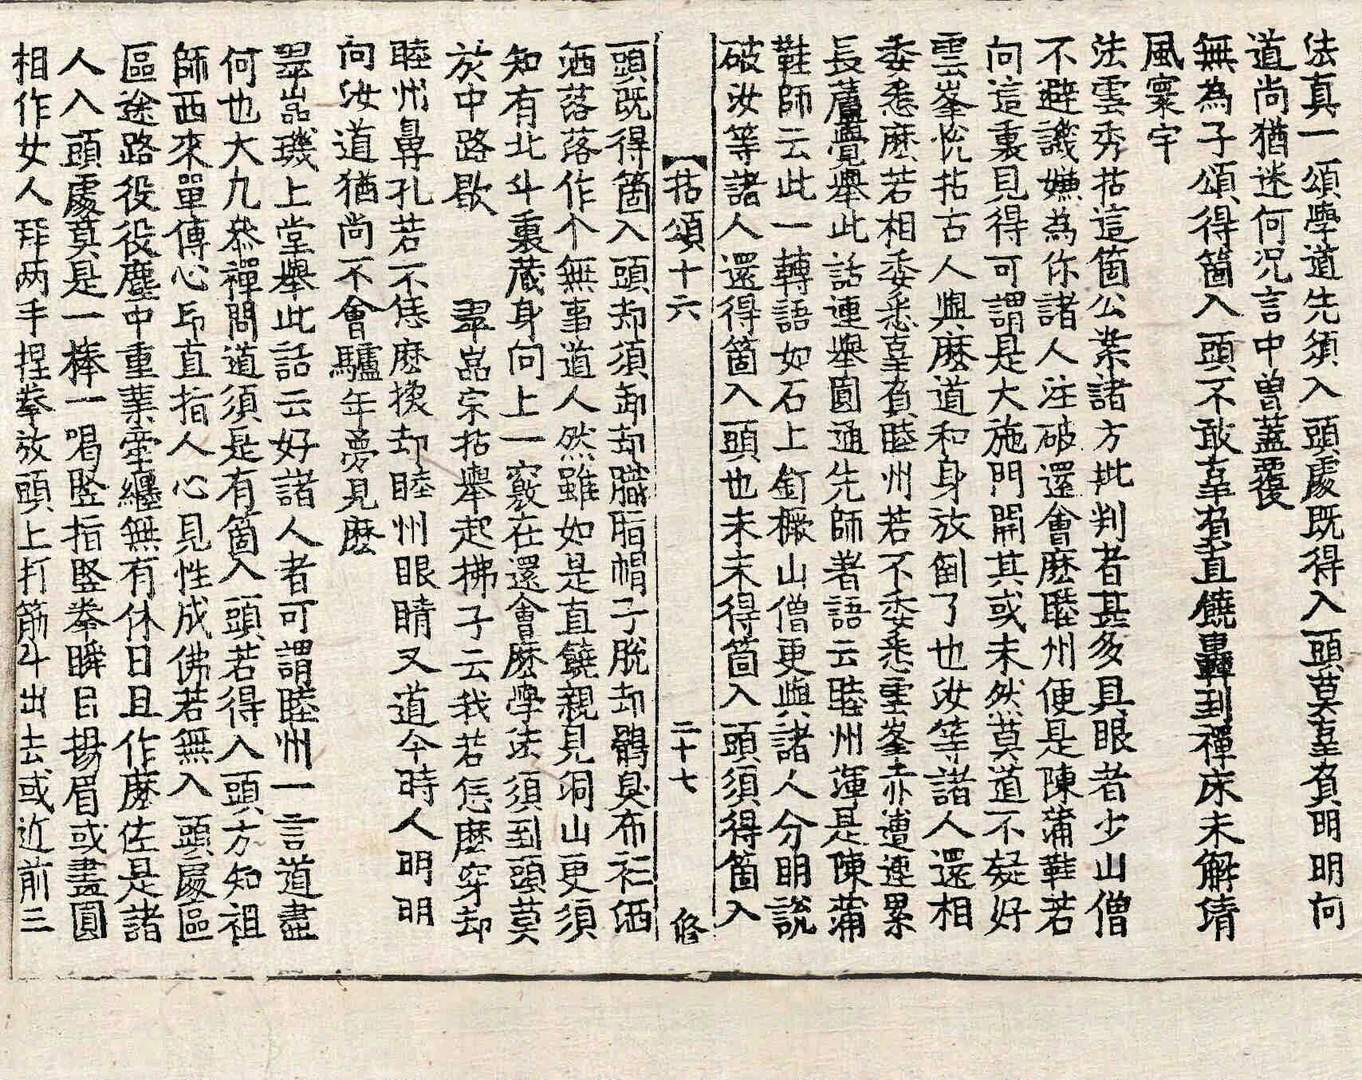 法真一頌學道先須入頭處既得入頭莫辜負明明向
道尚猶迷何況言中曾蓋覆
無為子頌得箇入頭不敢辜負直饒轟到禪床未解清
風寰宇
法雲秀拈這箇公案諸方批判者甚多具眼者少山僧
不避譏嫌為你諸人注破還會麽睦州便是陳蒲鞋若
向這裏見得可謂是大施門開其或未然莫道不疑好
雲峯恱拈古人與麽道和身放倒了也汝等諸人還相
委悉麽若相委悉辜負睦州若不委悉雲峯亦遭連累
長蘆覺舉此話連舉圓通先師著語云睦州渾是陳蒲
鞋師云此一轉語如石上釘橛山僧更與諸人分明說
破汝等諸人還得箇入頭也未未得箇入頭須得箇入
【拈頌十六 二十七 修
頭既得箇入頭却須卸却膱脂帽子脫却鶻臭布衫洒
洒落落作个無事道人然雖如是直饒親見洞山更須
知有北斗裏藏身向上一竅在還會麽學法須到頭莫
於中路歇 翠嵓宗拈舉起拂子云我若恁麽穿却
睦州鼻孔若不恁麽換却睦州眼睛又道今時人明明
向汝道猶尚不會驢年夢見麽
翠嵓璣上堂舉此話云好諸人者可謂睦州一言道盡
何也大凡叅禪問道須是有箇入頭若得入頭方知祖
師西來單傳心印直指人心見性成佛若無入頭處區
區途路役役塵中重業牽纏無有休日且作麽生是諸
人入頭處莫是一棒一喝竪指竪拳瞬目揚眉或畫圓
相作女人拜兩手捏拳放頭上打筋斗出去或近前三